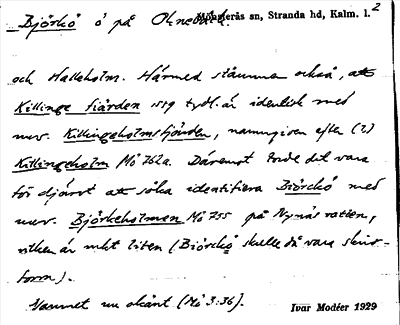 Björkö ö på Oknebäck. Mönsterås sn, Stranda hd, Kalm. l. 2
och Halleholm. Härmed stämmer också, att
Killinge fiärden 1559 tydl. är identisk med
nuv. Killingeholmsfjärden, namngiven efter (?)
Killingeholm Mö 762a. Däremot torde det vara
för djärvt att söka identifiera Biörckö med
nuv. Björkeholmen Mö 755 på Nynäs ratten,
vilken är mkt liten (Biörckö skulle då vara skriv-
form).
Namnet nu okänt (Mö 3:36).
Ivar Modéer 1929